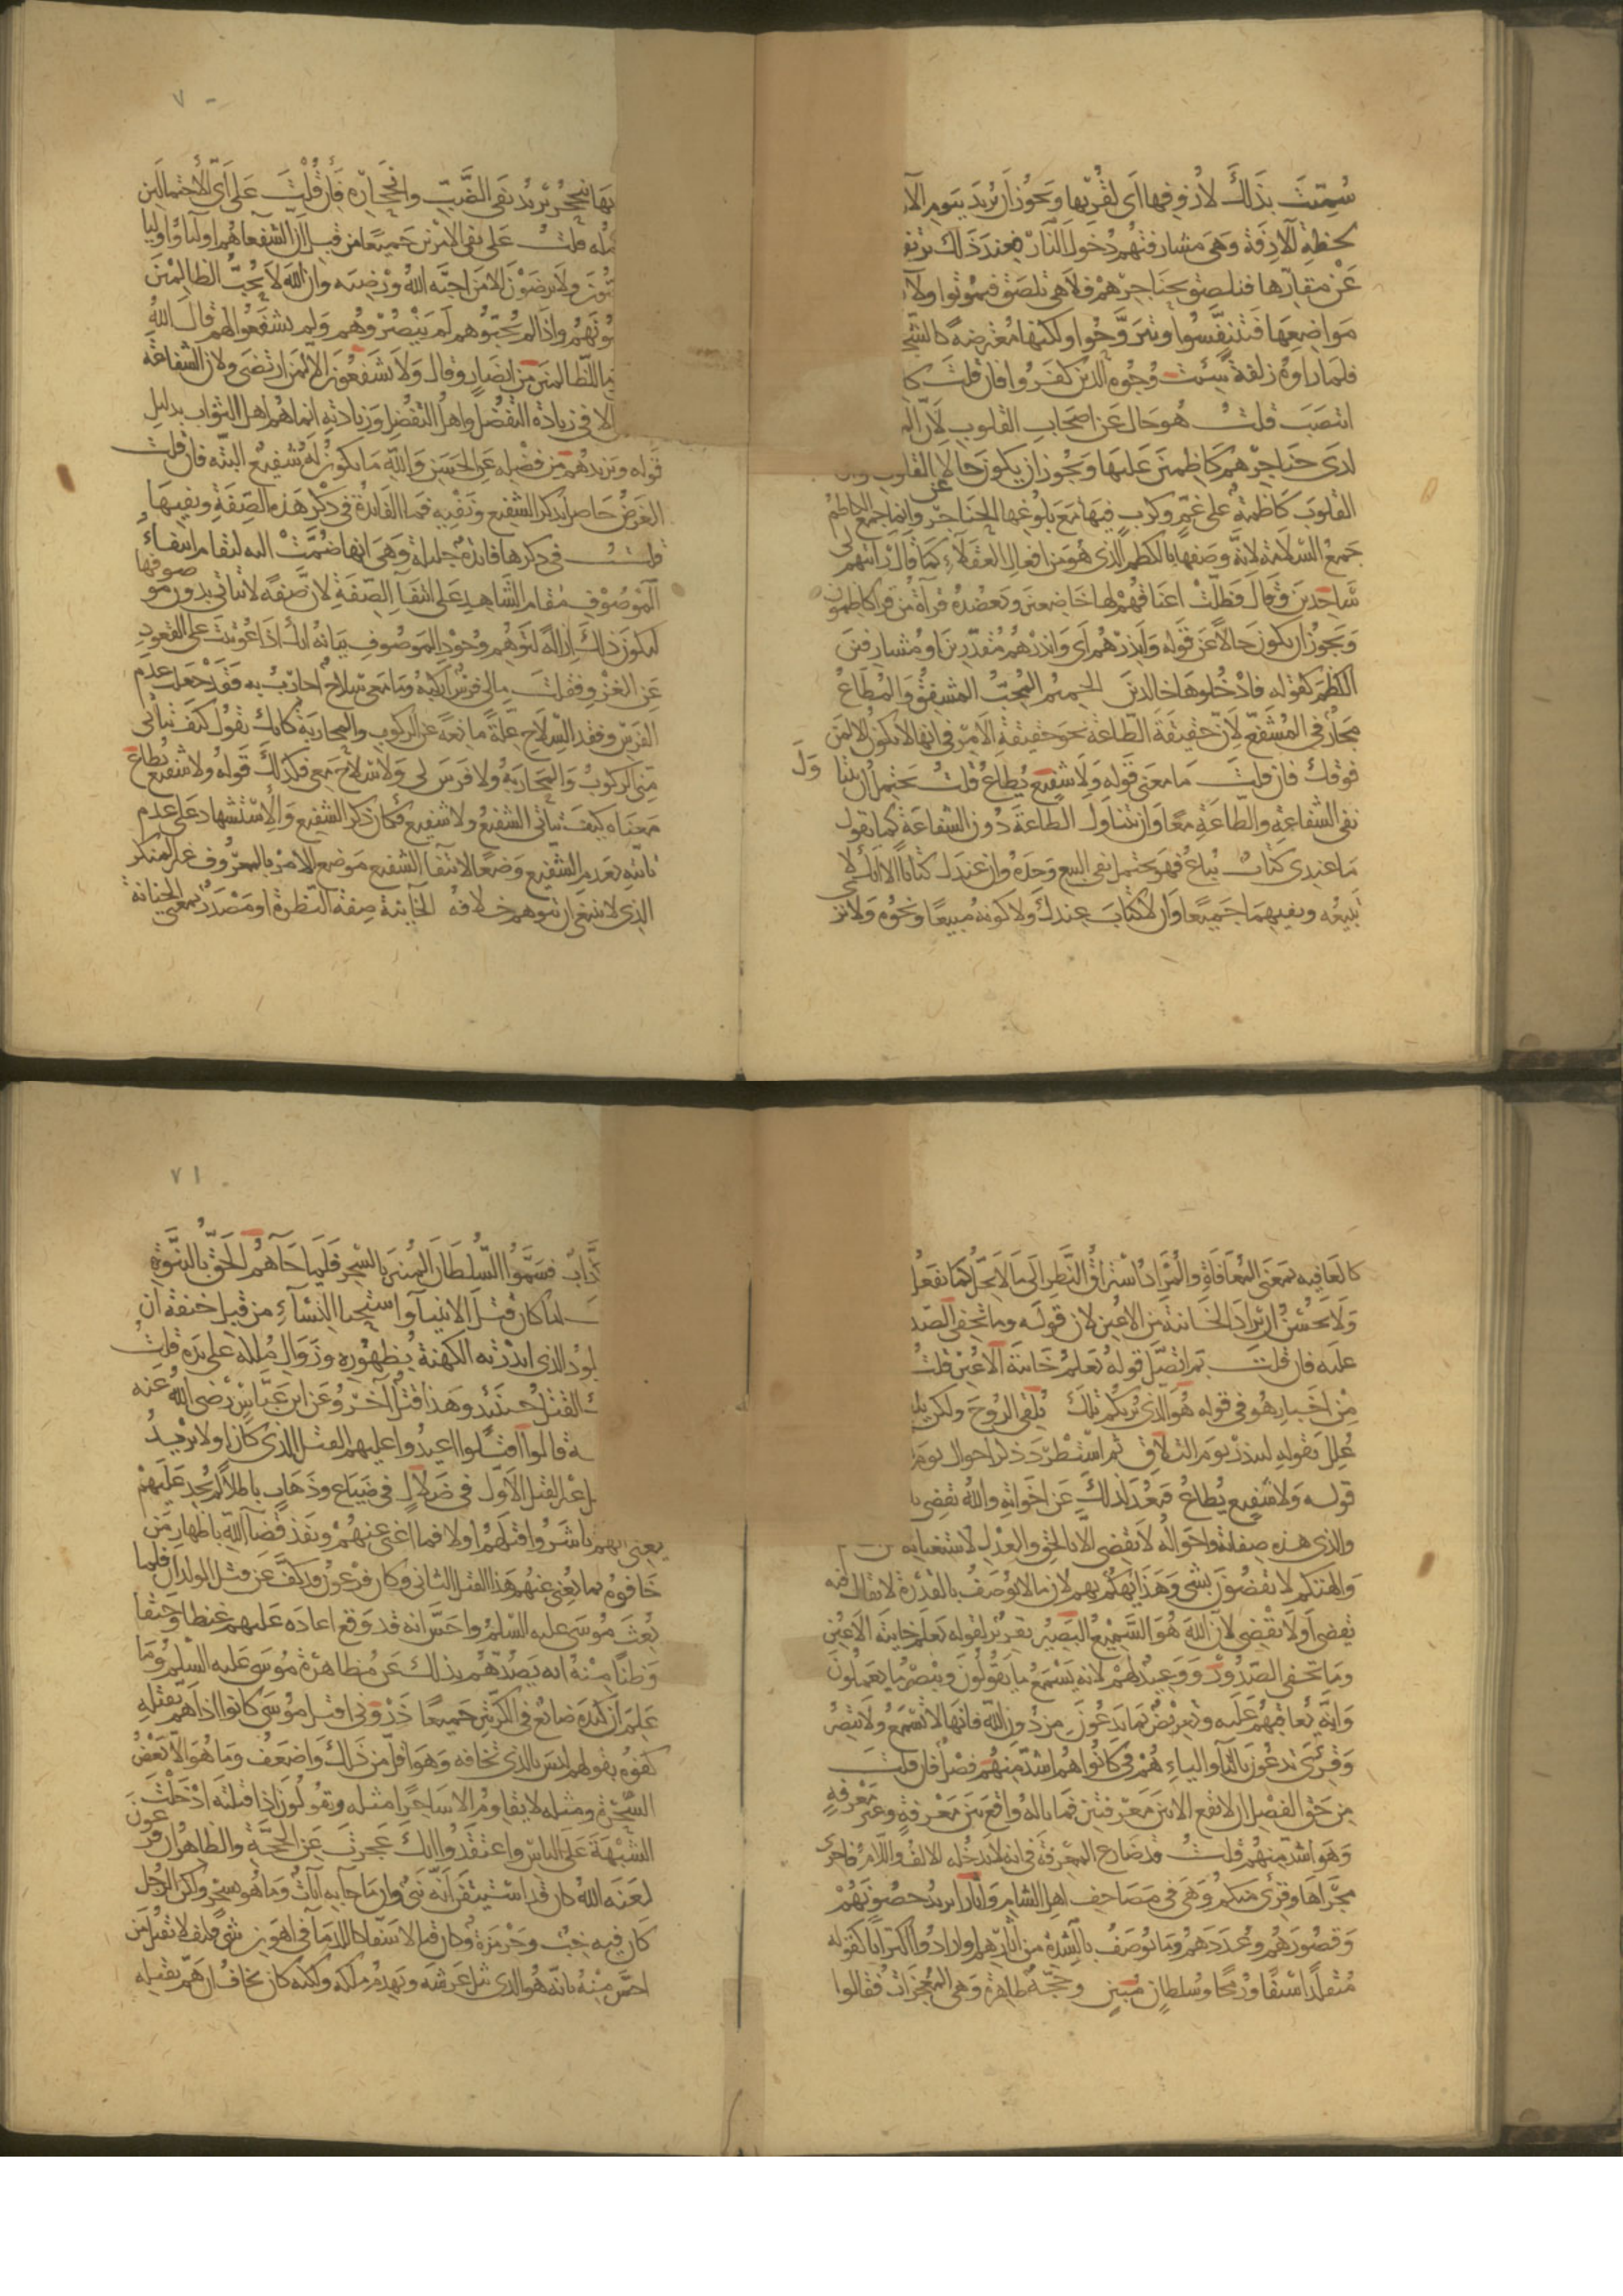 سُمِّيَت بذَلكَ لازوفها اى لقُربها وَيَجُوز ان يُريدَ بيوم الاز
بخطة الآزفة وهى مشارفتهُم دُخولَ النار فعند ذلك ترتفع
عَن مقارّها فتلصق بحَناجرهم فلاهى تخرج فيموتوا ولا
مَواضِعها فَتتنفَّسُوا ويتَروَّحُوا ولكنها مُعترضة كالشَّج
فلما راوه زلفة سيئت وُجُوه الذين كفَروا فان قلتَ كا
انتصَبَ قلتُ هُوحَال عَن اصحاب القلوب لان الم
لدى حَنَاجرهم كاظِمينَ عَليهَا وَيجُوز ان يكون حَالا عن القلوب وان
القلوبَ كاظمة على غمّ وكرب فيهَا مَع بلوغها الحناجر وانما جمع الكاظم
جمعَ السّلامَة لانَّه وصَفها بالكظم الذى هُوَمن افعال العُقلاء كما قَالَ رايتهم لى
سَاجدينَ وقَالَ فظلَّت اعنَاقهُم لها خَاضِعينَ وتعضدُه قرآة مَن قرأ كاظمون
وَيجوز ان يكون حَالاً عَن قَوله وَانذرهم اى وَانذرهُم مُقدّرينَ او مُشارفين
الكظمَ كقوله فادخُلوهَا خالدينَ الحميم المُحِبّ المشفقُ وَالمُطَاعُ
مجَازٌ فى المُشفَّع لانّ حَقيقَةَ الطّاعَة نحو حقيقة الامر فى انها لا تكون الا لمن
فوقك فان قلتَ مَا معَنى قَوله وَلا شَفيع يُطاعُ قلتُ يَحتمل ان يتنا وَلَ
نفى الشفاعَة والطّاعَة معًا وَان تتناوَل الطاعَةَ دُون الشفاعَة كما تقول
مَا عندى كتابٌ يُباعُ فهو يحتمل نفى البيع وَحدَهُ وان عندك كتابًا الا انك لا
تبيعُه ونفيهمَا جَميعًا وَان لا كتابَ عندَك ولا كونه مَبيعًا ونحوُه ولا ترَ
بهَا يَنجَحِرْ يُريد نفىَ الضَّبّ وانجحَارَه فَان قُلتَ عَلى اىّ الاحتمالين
قلتُ عَلى نفى الامرين جَميعًا من قبل ان الشفعا هُم اولياء الله واوليا
ولا يرضَوْن الا مَن احبَّه اللهُ ورضيَه وان الله لا يُحبّ الظالمينَ
واذا لم يُحبّوُهم لَم يَنصُروُهم وَلم يشفعُوا لهم قال اللهُ
للظالمينَ من انصَارٍ وقال ولا يَشفعُونَ الا لمَن ارتضَى ولان الشفاعَة
الا فى زيادَة التفضّل واهل التفضّل وَزيادته انما هُم اهل الثواب بدليل
قوله ويزيدهُم من فضله عَن الحَسَن وَاللّه مَا يكون لَهُ شفيع البتّة فان قلت
الغَرَض حَاصل بذكر الشفيع ونَفْيه فَما الفَائدة فى ذكر هَذه الصّفَة ونفيهَا
قلتُ فى ذكرها فائدة جليلة وَهىَ انها ضُمَّت اليه ليقام انتفاءُ
المَوصُوف مُقام الشَّاهد عَلى انتفاء الصّفَة لان صّفَةً لا تتاتى بدون موصوفها
ليكونَ ذلك ازالةً لتَوهُم وجُود المَوصُوف بيانه انك اذَا عُوتبتَ على القعود
عَن الغزو فقلتَ مالى فرسٌ اركبُه ومَا معى سلاحٌ احَاربُ به فقَدْ جَعلتَ عدم
الفرَس وفقد السّلاح علّةً مانعَةً عن الركوب والمحاربَة كانك تقول كيفَ يتأتى
منّى الركوبُ وَالمحارَبَة ولا فرَسَ لى وَلا سلاحَ معى فكذلك قَولهُ ولا شفيع يُطاع
معنَاه كيفَ يتأتى الشفيعُ ولا شفيع فكان ذكر الشفيع وَالاستشهاد على عدم
تاتّيه بعدم الشفيع وَضعًا لانتفآ الشفيع مَوضع الامر بالمعروف غير المنكر
الذى لا ينبغى ان يتوهم خلافه الخآئنة صفة النظرة او مَصدَرٌ بمعنى الخيانة
كالعَافيه بمعنى المُعَافاة والمُرادُ استراقُ النَّظر الَى مَا لا يحلّ كما يفعَل
وَلا يَحسُنُ ان يُرادَ الخَائنة من الاعين لان قولَه وما تخفى الصّد
عليه فان قلتَ بم اتصَل قولُه يَعلم خَائنةَ الاعيُن قلتُ
من اخبار هُو فى قوله هُوَ الذى يُريكُم مثلَ يُلقى الرُوحَ ولكن يلقى
عُلّلَ بقوله لينذر يَومَ التلاق ثم استطرَدَ ذكر احوال يوم
قوله وَلا شَفيعٍ يُطاعُ فبعُدَ لذلكَ عَن اخوَاته واللّهُ يقضى با
والذى هذه صفاته واحوَاله لا يَقضى الّا بالحَقّ والعدل لاستغنائه عن
والهتكم لا يَقضُونَ بشى وَهَذا تهكّم بهم لان ما لا يُوصَفُ بالقدْرَة لا يقال فيه
يَقضى اَو لا يَقْضى لانّ اللّهَ هُوَ السَّميعُ البَصيرُ تقريرٌ لقوله يَعلَم خائنةَ الاعيُن
ومَا تخفى الصّدُورُ وَوَعيدٌ لهُم لانه يَسْمَعُ ما يَقوُلونَ ويُبصرُ ما يَعملُونَ
وَانَّه يُعاقبهُم عَليه وتعريضٌ بما يَدعُونَ من دُون اللّه فانّها لا تَسْمَعُ ولا تُبصرُ
وَقُرئَ يَدعُونَ بالتآ والياء هُمْ فى كَانُوا هُم اشدّ منهُم فصْلٌ فان قلتَ
من حَقّ الفصل ان لا يقع الا بيَن مَعرفتين فَما بالُه وَاقعٌ بَين مَعرفةٍ وغير مَعرفةٍ
وَهَو اشدّ منهُم قلتُ قد ضَارع المعرفَةَ فى انه لا تَدخُله الالف واللّام فاجرىَ
مجرَاهَا وقُرئَ منكم وَهىَ فى مَصَاحف اهل الشام وَآثارًا يريد حُصُونهُمْ
وَقصُورَهُم وعُددَهُم ومَا يُوصَفُ بالشدّة من آثارهم او ارادُوا اكثر آثارًا كقوله
مُتقلّدًا سَيفًا ورُمحًا وسُلطانٍ مُبينٍ وحُجّةٌ ظاهرة وَهى المعُجزَاتُ فقالوا
فسَمَّوُا السُّلطَانَ المُبينَ بالسِّحر فَلَما جَآءهُم بالحَقّ بالنبوّة
اما كان قتلَ الابنآء واستحيا النسآء من قبل خيفَة ان
الذى انذرته الكهنةُ بظهُوره وزَوَال مُلكه على يدَه قلتُ
القتلُ حينئذٍ وَهذا قتلٌ آخَرُ وعَن ابن عَبّاسٍ رَضى اللهُ عنه
قالوا اقتلوا اعيدُوا عليهم القتل الذى كان اولا يُريدُ
القتل الاوّل فى ضَلالٍ فى ضيَاع وذَهَاب باطلاً لم يُجد عَليهمْ
يعنى انهم بَاشَرُوا قتلهُمْ اولا فما اغنى عنهُمْ ونفذ قضآءُ اللّه باظهار مَن
خَافوُه فما يُغنى عَنهُم هَذا القتل الثانى وكان فرعون قد كفَّ عَن قتل الولدان فلما
بُعثَ مُوسَى عليه السّلم واحَسَّ انه قد وَقع اعادَه عَليهم غيظا وحَنقًا
وَظنًا منْهُ انه يَصُدّهُم بذلك عَن مُظاهرة مُوسَى عَليه السّلم ومَا
عَلِمَ انَّ كيدَه ضائعٌ فى الكرّتَين جَميعًا ذَرُونى اقتل موُسَى كانوا اذا هَمّ بقتله
كفّوُه بقولهم ليسَ بالذى تخافه وَهوَ اقلّ من ذَلكَ وَاضعَف ومَا هُوَ الا بَعْضُ
السَّحَرة ومثله لا يُقاومُ الا سَاحرًا مثله ويقُولُونَ اذا قتلتَه ادْخَلتَ
الشبْهَةَ عَلى الناس واعتقَدُوا انك عَجزتَ عَن الحجَّة والظاهرُ ان فرعونَ
لعَنَه اللهُ كان قد استَيقَن انّه نبىٌّ وان ما جآء به آياتٌ ومَا هُو بسحر ولكن الرجُل
كانَ فيه خبٌّ وجَرْبَزَة وكان قتّالا سَفّاكا للدّمآء فى اهوَن شىء فكيف لا يقتل مَن
احَسَّ منْهُ بانّه هُو الذى يثلّ عَرشَه ويهدم مُلكه ولكنه كان يخافُ ان هَمّ بقتله